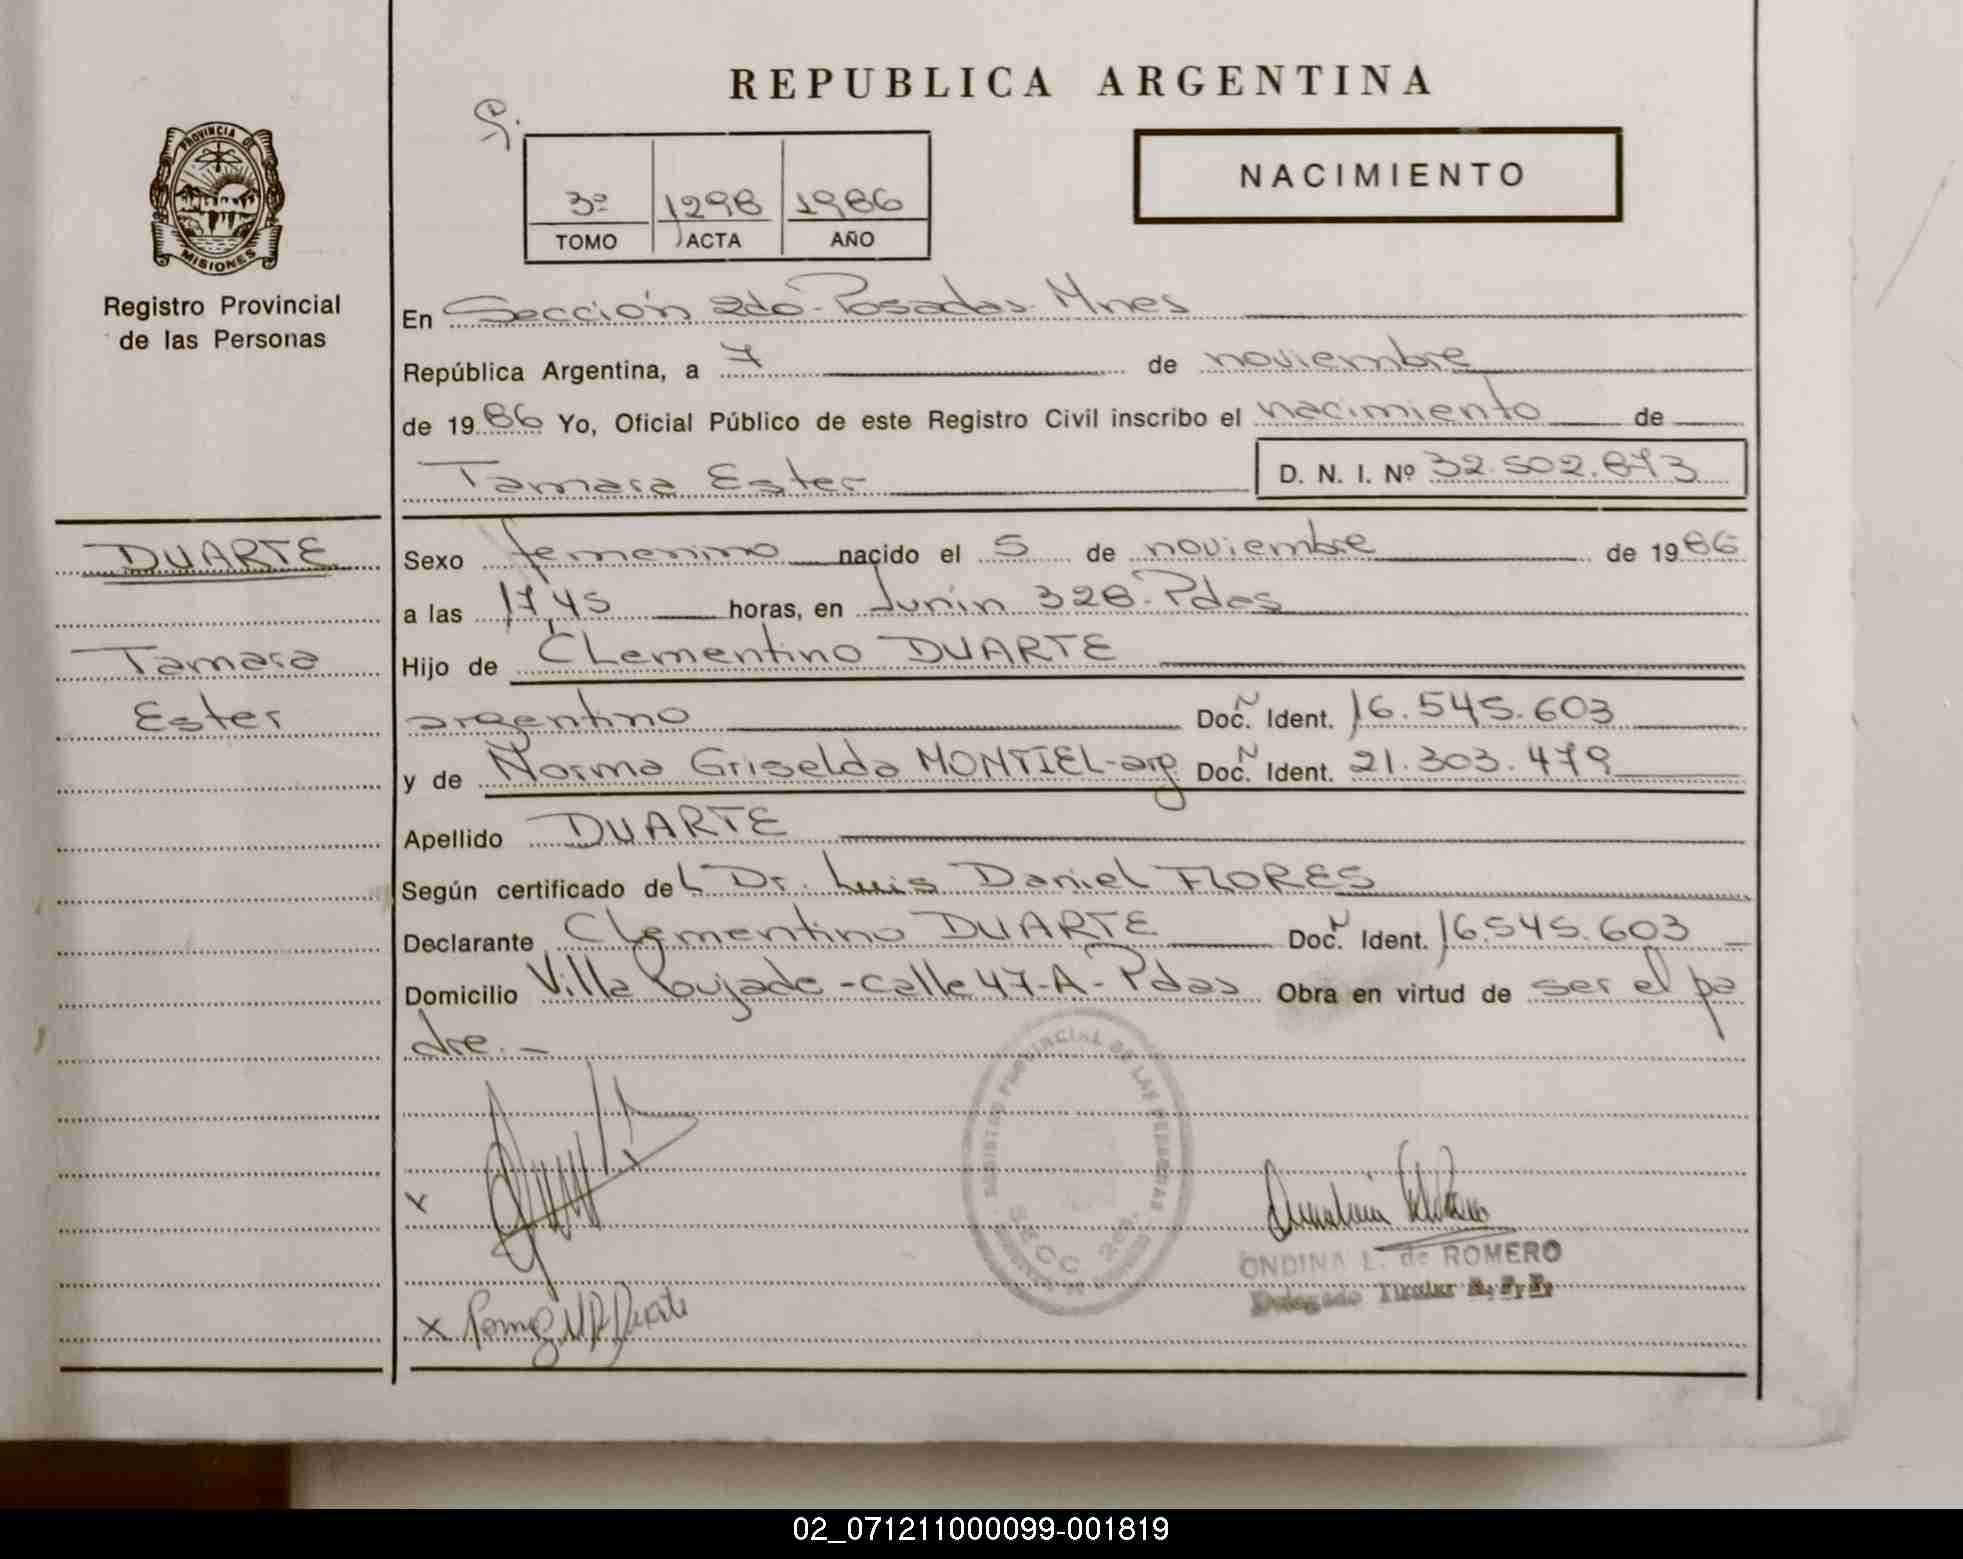 REPUBLICA ARGENTINA
PROVINCIA DE
MISIONES
Registro Provincial
de las Personas
3º 1298 1986
TOMO ACTA AÑO
NACIMIENTO
En Sección 2do - Posadas - Mnes
República Argentina, a 7 de noviembre
de 1986 Yo, Oficial Público de este Registro Civil inscribo el nacimiento de
Tamara Ester D. N. I. Nº 32.502.873
DUARTE
Tamara
Ester
Sexo femenino nacido el 5 de noviembre de 1986
a las 17,45 horas, en Junín 328 - Pdas
Hijo de CLementino DUARTE
argentino Doc. Ident. 16.545.603
y de Norma Griselda MONTIEL - arg Doc. Ident. 21.303.479
Apellido DUARTE
Según certificado del Dr. Luis Daniel FLORES
Declarante Clementino DUARTE Doc. Ident. 16.545.603
Domicilio Villa Poujade - calle 47-A - Pdas Obra en virtud de ser el pa
dre.-
REGISTRO PROVINCIAL DE LAS PERSONAS
SECC. 2da.
ONDINA L. de ROMERO
Delegado Titular
02_071211000099-001819